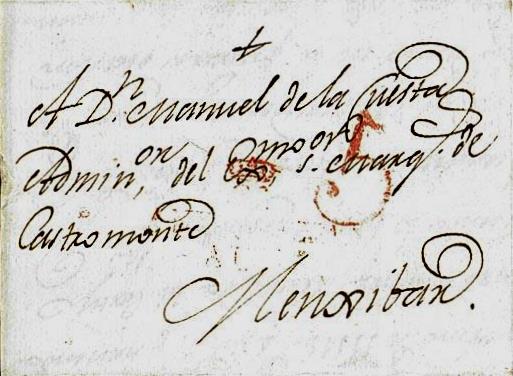 A Dn. Manuel de la Cuesta
Admin.or, del Exmo. Sor. Marqs. de
Castromonte
Menxibar.